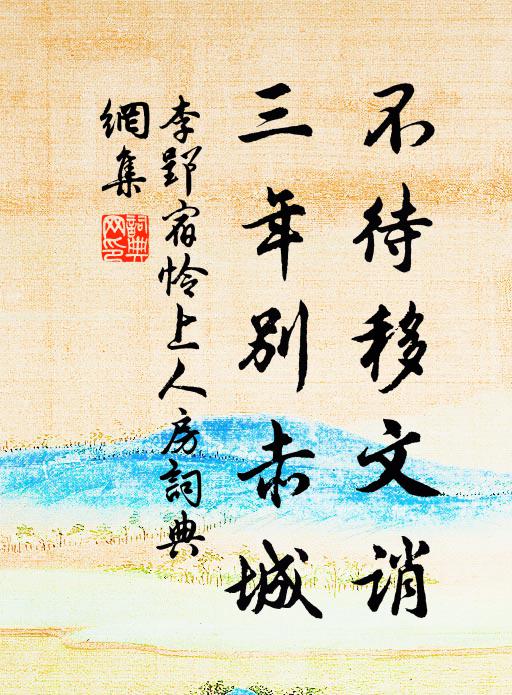 不待移文誚
三年別赤城
李郢宿怜上人房詞典
網集
詞典
网印